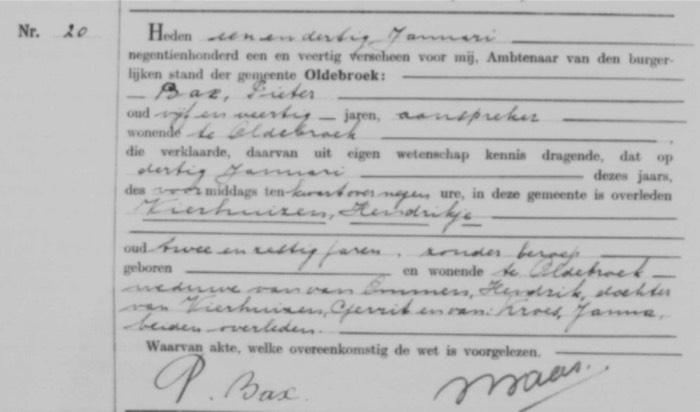 Nr. 20
Heden een en dertig Januari
negentienhonderd een en veertig verscheen voor mij, Ambtenaar van den burger-
lijken stand der gemeente Oldebroek:
Bax, Pieter
oud vijf en veertig jaren, aanspreker
wonende te Oldebroek
die verklaarde, daarvan uit eigen wetenschap kennis dragende, dat op
dertig Januari dezes jaars,
des voormiddags ten kwart over negen ure, in deze gemeente is overleden
Vierhuizen, Hendrikje
oud twee en zestig jaren, zonder beroep
geboren en wonende te Oldebroek
weduwe van van Ommen, Hendrik, dochter
van Vierhuizen, Gerrit en van: Kroes, Janna,
beiden overleden.
Waarvan akte, welke overeenkomstig de wet is voorgelezen.
P. Bax. Maas.